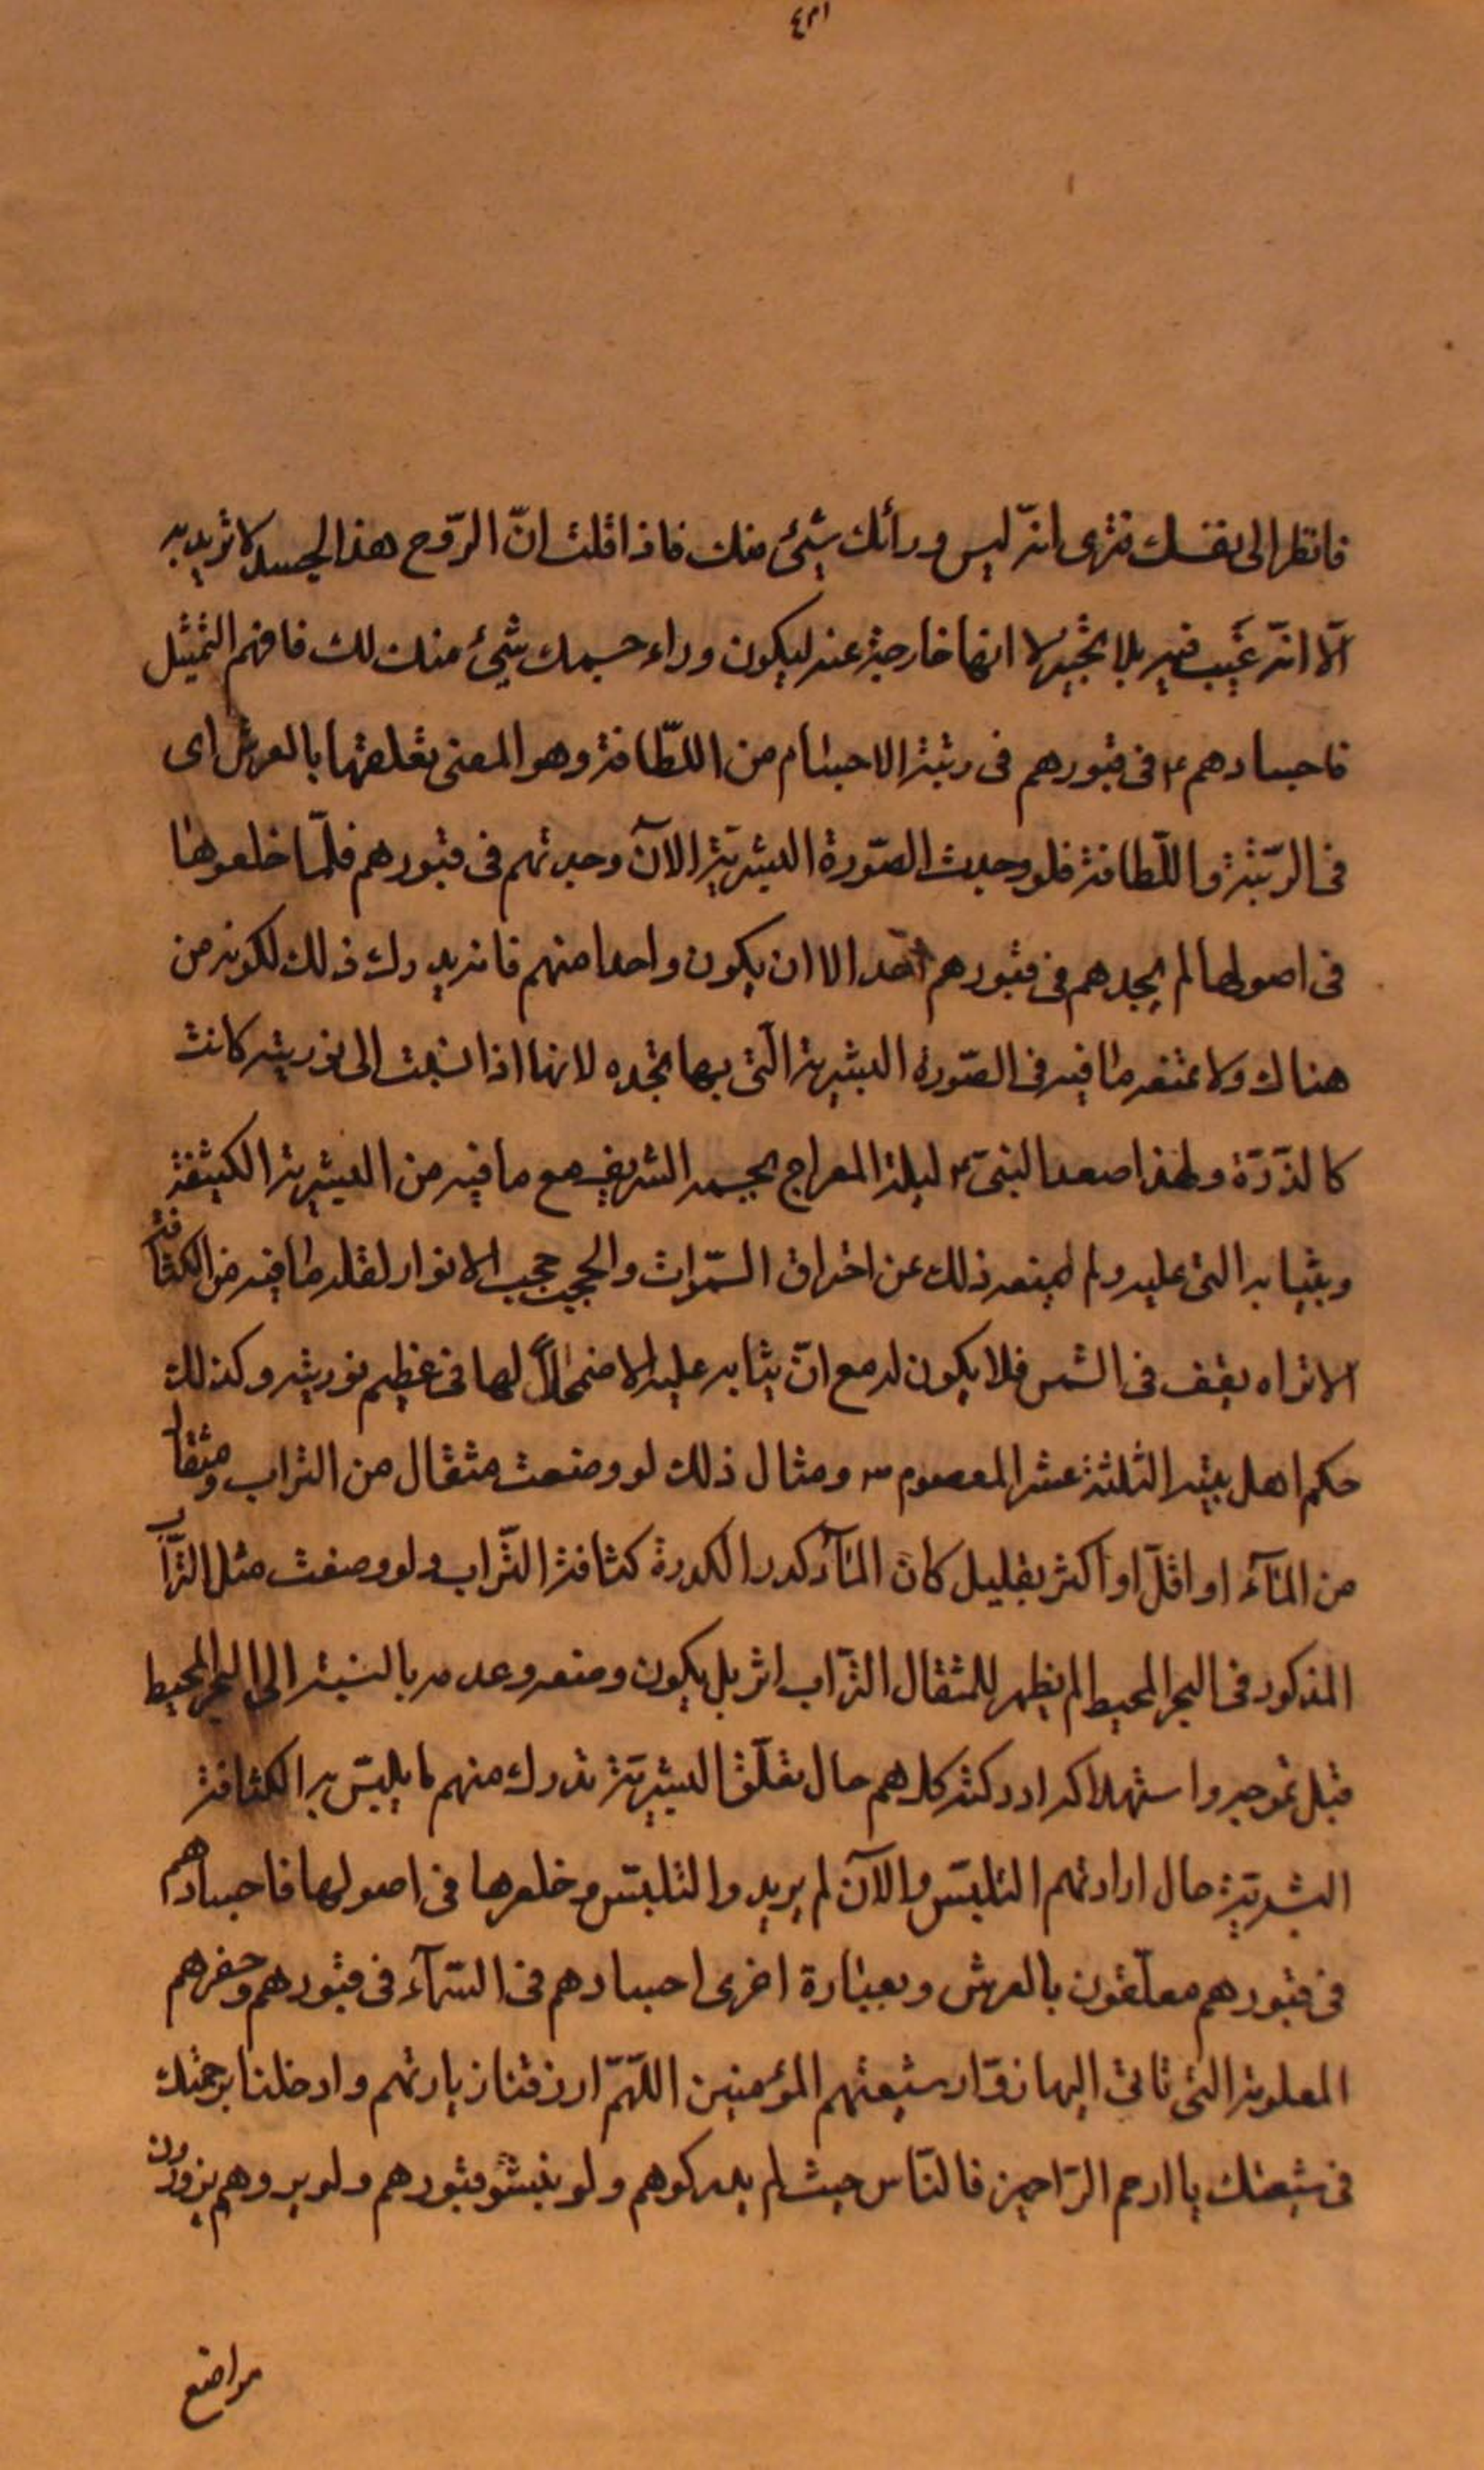 ٤٢١
فانظر الى نفسك فترى انه ليس ورائك شيئ منك فاذا قلت انّ الرّوح هذا الجسد لا تريد به
الّا انّه غَيب فيه بلا تحيّز لا انها خارجة عنه ليكون وراء جسمك شيئ منك لك فافهم التمثيل
فاجسادهم ع في قبورهم في رتبة الاجسام من اللّطافة وهو المعنى بتعلقها بالعرش اى
في الرّتبة واللّطافة فلو وجدت الصّورة البشريّة الآن وجدتهم في قبورهم فلمّا خلعوها
في اصولها لم يجدهم في قبورهم احد الا ان يكون واحدا منهم فانه يدرك ذلك لكونه من
هناك ولا تمنعه ما فيه في الصّورة البشرية الّتي بها تجده لانها اذا نسبت الى نوريته كانت
كالذرّة ولهذا صعد النبيّ ص ليلة المعراج بجسمه الشريف مع ما فيه من البشرية الكثيفة
وبثيابه التي عليه ولم يمنعه ذلك عن اختراق السّموات والحجب حجب الانوار لقلة ما فيه من الكثافة
الا تراه يقف في الشمس فلا يكون له مع انّ ثيابه عليه لاضمحلال لها في عظيم نوريته وكذلك
حكم اهل بيته الثلثة عشر المعصوم س ومثال ذلك لو وضعت مثقال من التراب ومثقال
من المآء او اقلّ او اكثر بقليل كان المآء كدرا لكدرة كثافة التّراب ولو وضعت مثل التّراب
المذكور في البحر المحيط لم يظهر للمثقال التّراب اثر بل يكون وضعه وعدمه بالنسبة الى البحر المحيط
قبل تموجه واستهلاكه ادركته كلاهم حال تعلّق البشريّة تدرك منهم ما يلبّس به الكثافة
البشريّة حال ارادتهم التلبّس والآن لم يريدوا التلبّس وخلعوها في اصولها فاجسادهم
في قبورهم معلّقون بالعرش وبعبارة اخرى اجسادهم في السّمآء في قبورهم وحفرهم
المعلومة التي تاتي اليها زوّار شيعتهم المؤمنين اللّهمّ ارزقنا زيارتهم وادخلنا برحمتك
في شيعتك يا ارحم الرّاحمين فالنّاس حيث لم يدركوهم ولو نبشو قبورهم ولو يروهم يزورون
مواضع